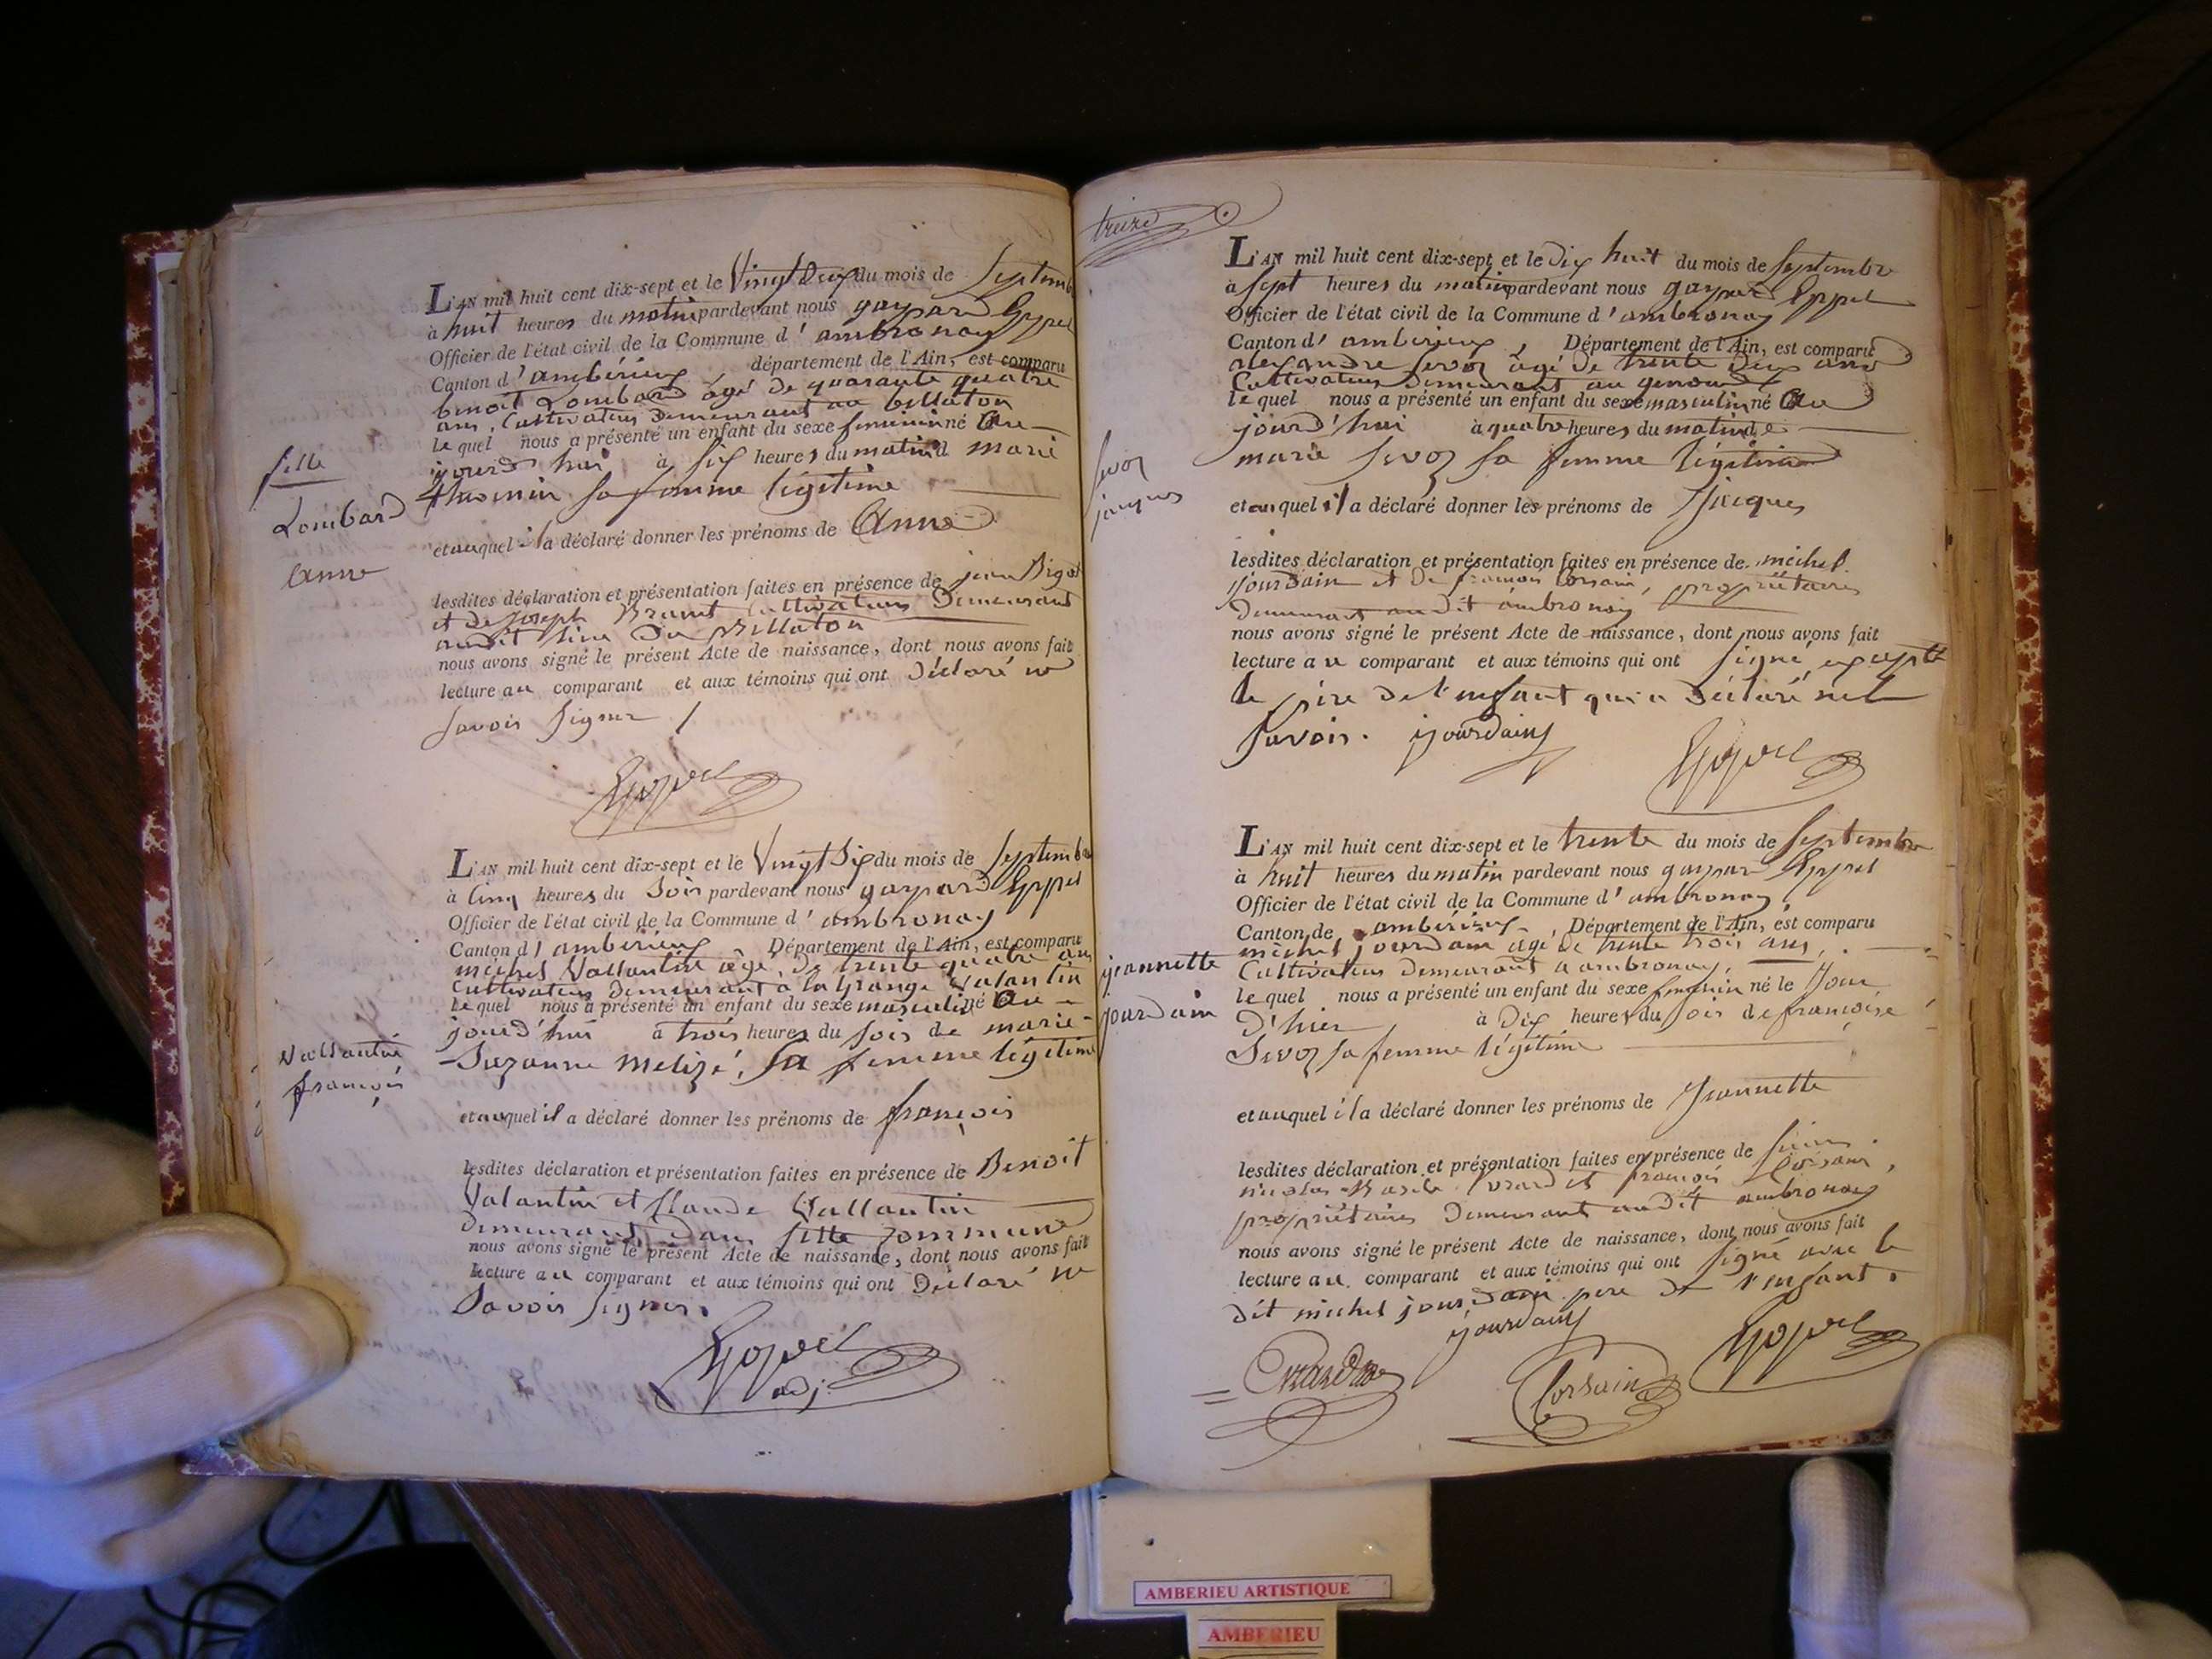 L'AN mil huit cent dix-sept et le Vingt Deux du mois de Septemb
à huit heures du matin pardevant nous gaspard Eppel
Officier de l'état civil de la Commune d' ambronay
Canton d' ambérieux, département de l'Ain, est comparu
benoit Lombard agé de quarante quatre
ans, Cultivateur Demeurant au bellaton
le quel nous a présenté un enfant du sexe feminin né Au-
jourd hui à six heures du matin d marie
thuomin sa femme légitime
et auquel il a déclaré donner les prénoms de Anne
lesdites déclaration et présentation faites en présence de jean Bigot
et de joseph Cultivateurs Demeurant
audit lieu Du Bellaton
nous avons signé le présent Acte de naissance, dont nous avons fait
lecture au comparant et aux témoins qui ont Déclaré ne
Savoir Signer /
Eppel
fille
Lombard
Anne
L'AN mil huit cent dix-sept et le Vingt Six du mois de Septembre
à Cinq heures du Soir pardevant nous gaspard Eppel
Officier de l'état civil de la Commune d' ambronay
Canton d' ambérieux, Département de l'Ain, est comparu
michel Vallantin agé De trente quatre ans
Cultivateur Demeurant a la Grange Valantin
le quel nous a présenté un enfant du sexe masculin né Au-
jourd'hui à trois heures du soir de marie-
-Suzanne Melizé, Sa femme légitime
et auquel il a déclaré donner les prénoms de françois
lesdites déclaration et présentation faites en présence de Benoit
Valantin et Claude Vallantin
Demeurant Dans cette commune
nous avons signé le présent Acte de naissance, dont nous avons fait
lecture au comparant et aux témoins qui ont Déclaré ne
Savoir Signer.
Eppel
adj.
Vallantin
françois
treize
L'AN mil huit cent dix-sept et le dix huit du mois de Septembre
à sept heures du matin pardevant nous gaspard Eppel
Officier de l'état civil de la Commune d' ambronay
Canton d' ambérieux, Département de l'Ain, est comparu
alexandre Sevoz agé de trente Deux ans
Cultivateur Demeurant au genoud
le quel nous a présenté un enfant du sexe masculin né Au
jourd'hui à quatre heures du matin de
marie Sevoz sa femme légitime
et auquel il a déclaré donner les prénoms de Jacques
lesdites déclaration et présentation faites en présence de michel
Jourdain et De françois Corsain, propriétaires
Demeurant audit ambronay
nous avons signé le présent Acte de naissance, dont nous avons fait
lecture au comparant et aux témoins qui ont Signé, excepté
le père de l'enfant qui a Déclaré ne le
Savoir. jourdain
Eppel
Sevoz
jacques
L'AN mil huit cent dix-sept et le trente du mois de Septembre
à huit heures du matin pardevant nous gaspar Eppel
Officier de l'état civil de la Commune d' ambronay
Canton de ambérieux, Département de l'Ain, est comparu
michel jourdain agé De trente trois ans,
Cultivateur Demeurant a ambronay,
le quel nous a présenté un enfant du sexe feminin né le Jour
D'hier à Dix heures du soir de françoise
Sevoz sa femme légitime
et auquel il a déclaré donner les prénoms de Jeannette
lesdites déclaration et présentation faites en présence de
nicolas françois Corsain,
propriétaires Demeurant audit ambronay
nous avons signé le présent Acte de naissance, dont nous avons fait
lecture au comparant et aux témoins qui ont Signé avec le
dit michel jourdain père de l'enfant.
jourdain
Corsain
Eppel
jeannette
jourdain
AMBERIEU ARTISTIQUE
AMBERIEU